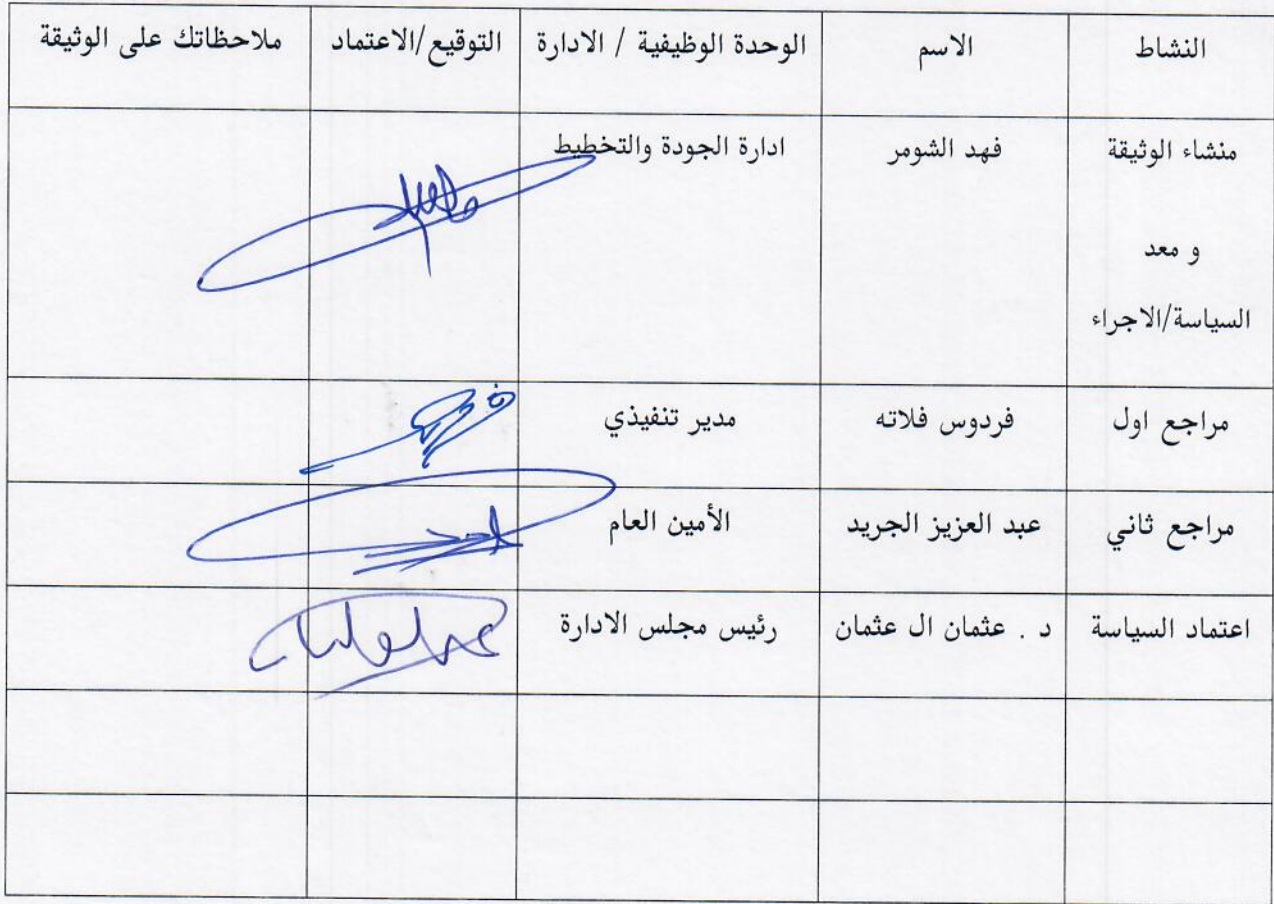 النشاط الاسم الوحدة الوظيفية / الادارة التوقيع/الاعتماد ملاحظاتك على الوثيقة
منشاء الوثيقة فهد الشومر ادارة الجودة والتخطيط
و معد
السياسة/الاجراء
مراجع اول فردوس فلاته مدير تنفيذي
مراجع ثاني عبد العزيز الجريد الأمين العام
اعتماد السياسة د . عثمان ال عثمان رئيس مجلس الادارة